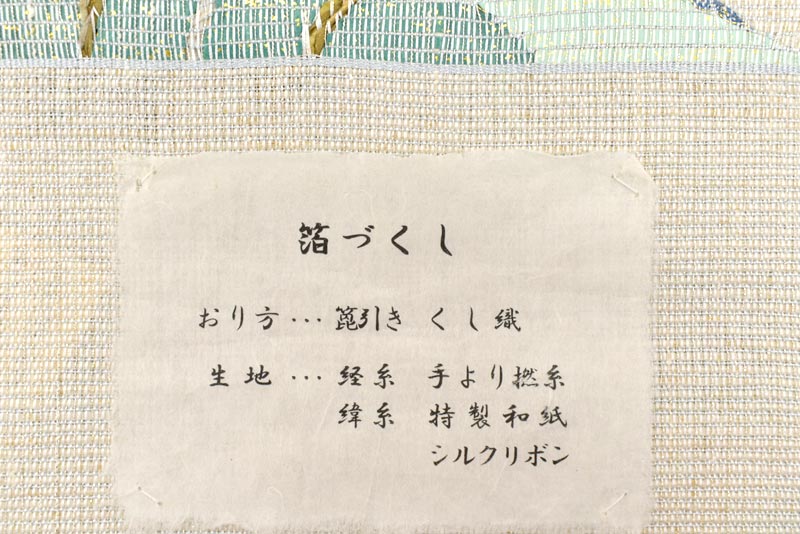 箔づくし
おり方…箆引き くし織
生地…経糸 手より撚糸
緯糸 特製和紙
シルクリボン